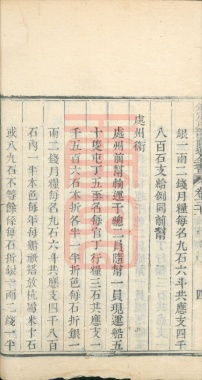 銀一兩二錢月糧每名九石六斗共應支四千
八百石支給劍同前幫
處州衛
處州前幫輸運千總二員隨幫一員現運船五
十隻屯丁五百名每官丁行糧三石共應支一
千五百六石本折各半一半折色每石折銀一
兩二錢月糧每名九石六斗共應支四千八百
石內一半本色每年每船派撥放杭嚴米十石
或八九石不等餘係每石折銀一兩二錢一半